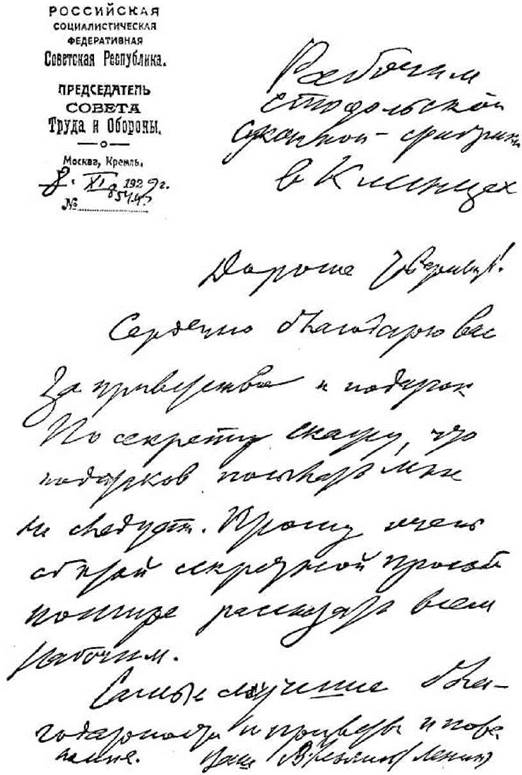 РОССИЙСКАЯ
СОЦИАЛИСТИЧЕСКАЯ
ФЕДЕРАТИВНАЯ
Советская Республика.
ПРЕДСЕДАТЕЛЬ
СОВЕТА
Труда и Обороны.
Москва, Кремль.
8. XI 192 г.
№
Рабочим
стодольской
суконной фабрики
в Клинцах
Дорогие товарищи!
Сердечно благодарю вас
за приветствие и подарок
По секрету скажу, что
подарков посылать мне
не следует. Прошу очень
об этой секретной просьбе
пошире рассказать всем
рабочим.
Самые лучшие бла-
годарности и приветы и поже
лания. Ваш В Ульянов (Ленин)